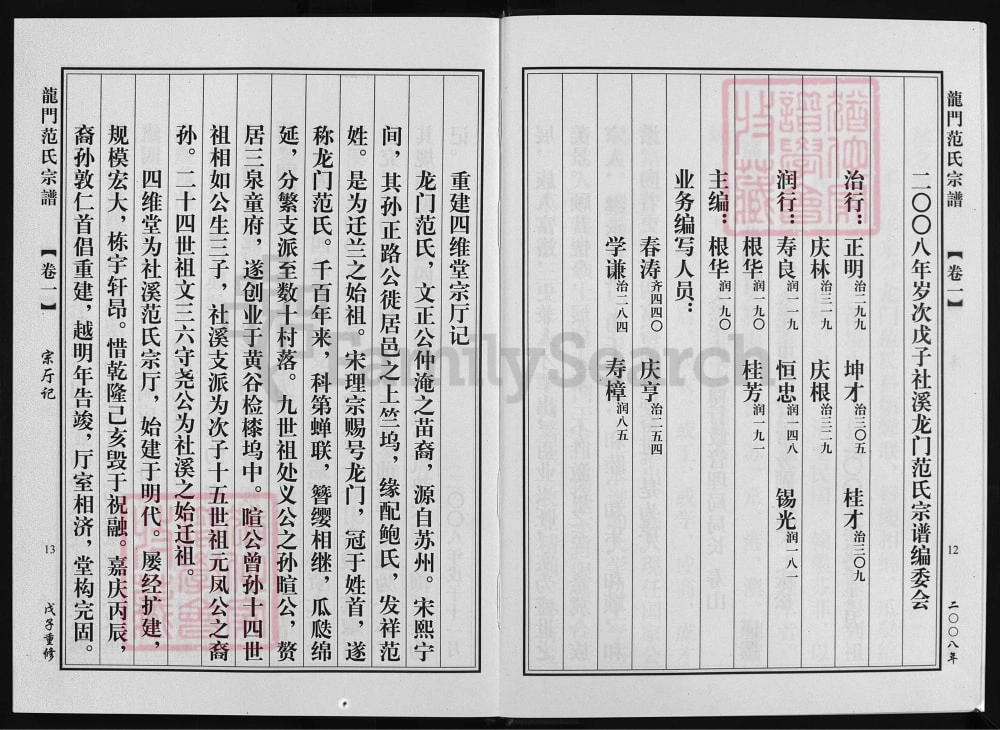 龍門范氏宗譜
【卷一】
12
二〇〇八年
二〇〇八年岁次戊子社溪龙门范氏宗谱编委会
治行：正明治二九九 坤才治三〇五 桂才治三〇九
庆林治三一九 庆根治三二九
润行：寿良润一一九 恒忠润一四八 锡光润一八一
根华润一九〇 桂芳润一九一
主编：根华润一九〇
业务编写人员：
春涛齐四四〇 庆亨治二五四
学谦治二八四 寿樟润八五
重建四维堂宗厅记
龙门范氏，文正公仲淹之苗裔，源自苏州。宋熙宁
间，其孙正路公徙居邑之上竺坞，缘配鲍氏，发祥范
姓。是为迁兰之始祖。宋理宗赐号龙门，冠于姓首，遂
称龙门范氏。千百年来，科第蝉联，簪缨相继，瓜瓞绵
延，分繁支派至数十村落。九世祖处义公之孙暄公，赘
居三泉童府，遂创业于黄谷检檫坞中。暄公曾孙十四世
祖相如公生三子，社溪支派为次子十五世祖元凤公之裔
孙。二十四世祖文三六守尧公为社溪之始迁祖。
四维堂为社溪范氏宗厅，始建于明代。屡经扩建，
规模宏大，栋宇轩昂。惜乾隆己亥毁于祝融。嘉庆丙辰，
裔孙敦仁首倡重建，越明年告竣，厅室相济，堂构完固。
龍門范氏宗譜
【卷一】
宗厅记
13
戊子重修
FamilySearch